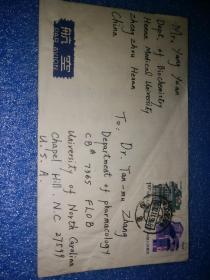 Mrs Yang Yuan
Dept. of Biochemistry
Henan Medical University
Zhengzhou Henan
China
航空
PAR AVION
To: Dr. Tan-mu Zhang
Department of pharmacology
CB# 7365 FLOB
University of North Carolina
Chapel Hill, N.C 27599
U.S.A